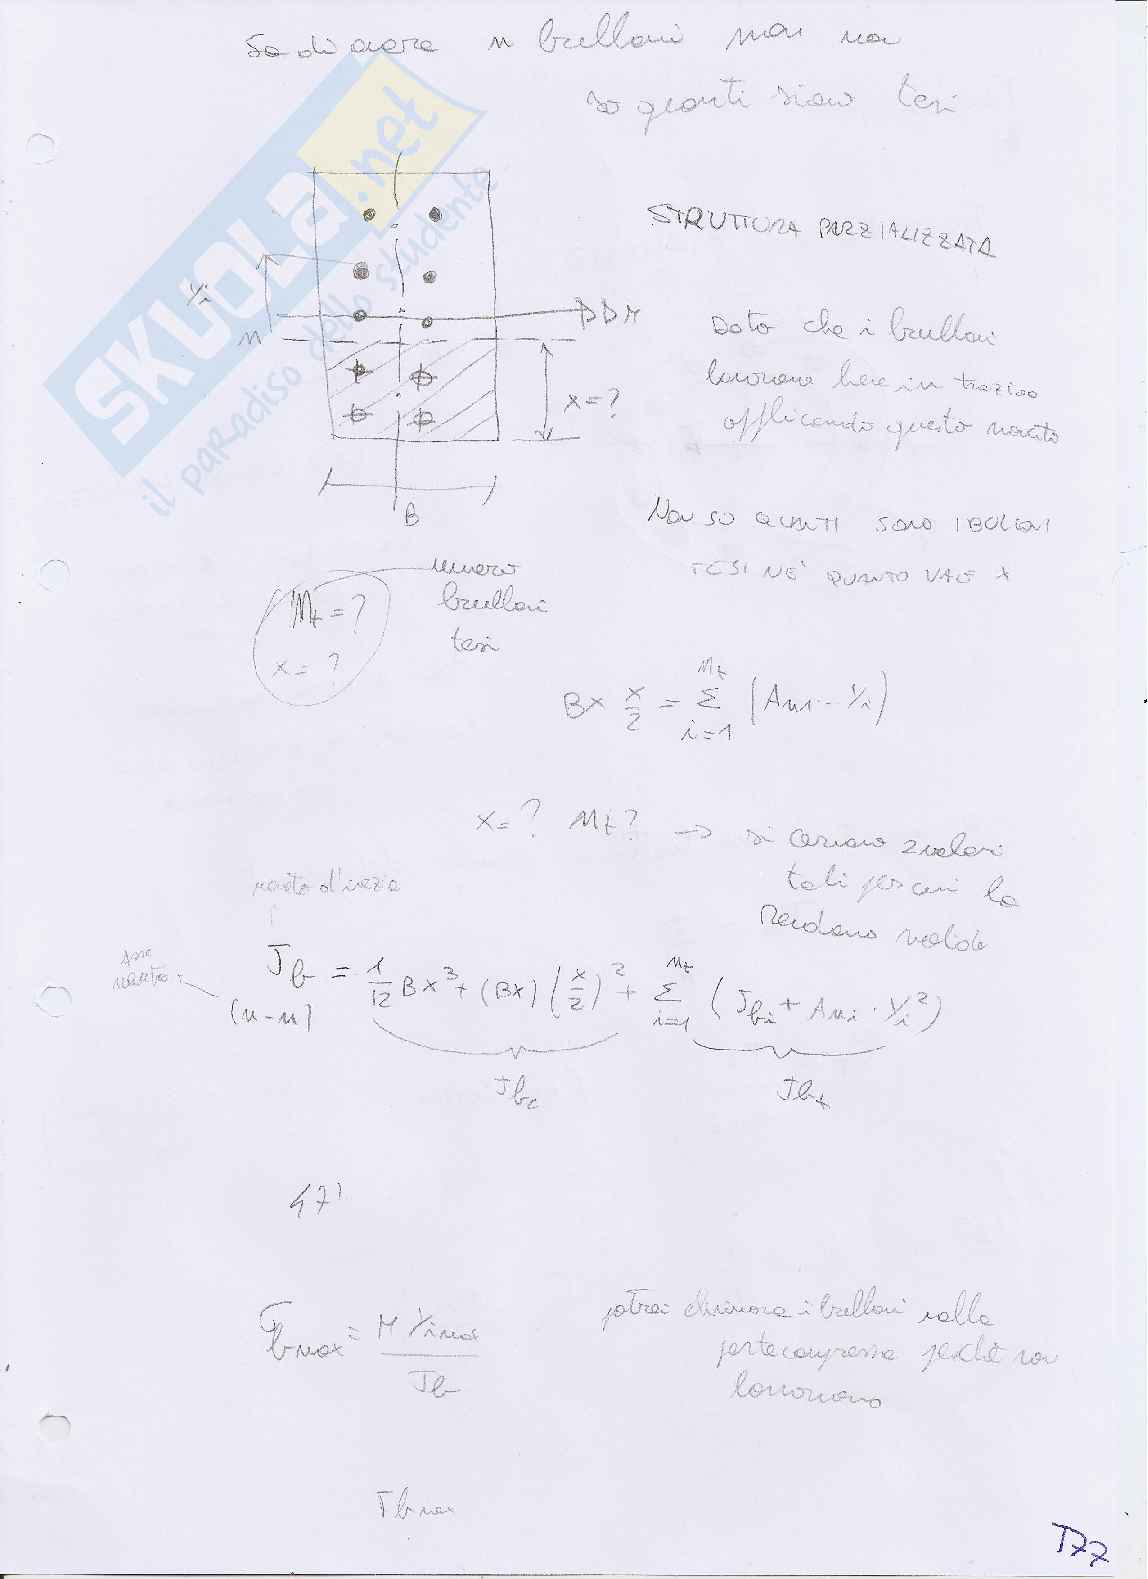 So di avere n bulloni ma non
so quanti siano tesi
SKUOLA.net
il paradiso dello studente
STRUTTURA PARZIALIZZATA
Yi
n
Dato che i bulloni
lavorano bene in trazione
applicando questo momento
x=?
B
Non so quanti sono i bulloni
tesi né quanto vale x
numero
bulloni
tesi
Mt = ?
x = ?
Bx x/2 = Σ i=1 Mt (Ani · Yi)
x=? Mt? → si cercano 2 valori
tali per cui la
rendano valida
momento d'inerzia
Asse
neutro
Jb (n-n) = 1/12 Bx³ + (Bx) (x/2)² + Σ i=1 Mt (Jbi + Ani · Yi²)
Jbc
Jbt
47'
σbmax = M Yimax / Jb
potrei eliminare i bulloni nella
parte compressa perchè non
lavorano
Tbmax
T77